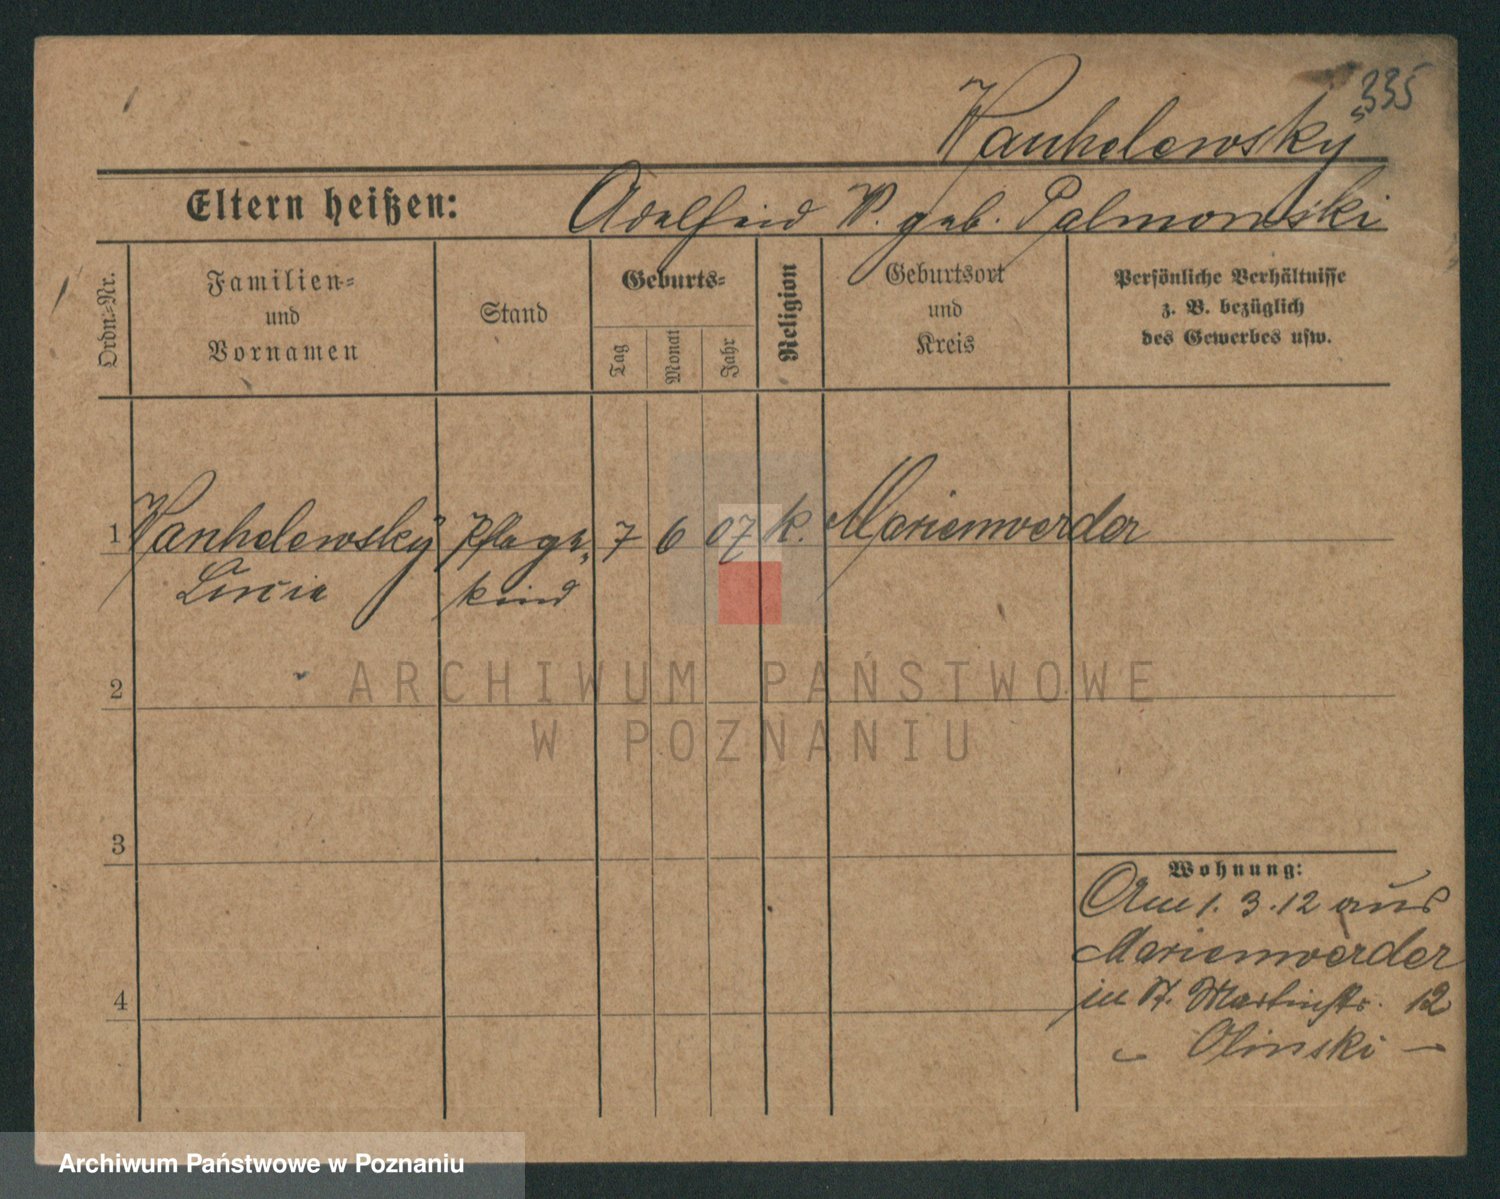 335
Wanhelewsky
Eltern heißen: Adelheid W. geb. Palmowski
Ordn.-Nr.
Familien-
und
Vornamen
Stand
Geburts-
Tag
Monat
Jahr
Religion
Geburtsort
und
Kreis
Persönliche Verhältnisse
z. B. bezüglich
des Gewerbes usw.
1 Wanhelewsky Pflege- 7 6 07 k. Marienwerder
Lucia kind
2
3
4
Wohnung:
Am 1. 3. 12 aus
Marienwerder
in St. Martinstr. 12
Olinski
ARCHIWUM PAŃSTWOWE
W POZNANIU
Archiwum Państwowe w Poznaniu